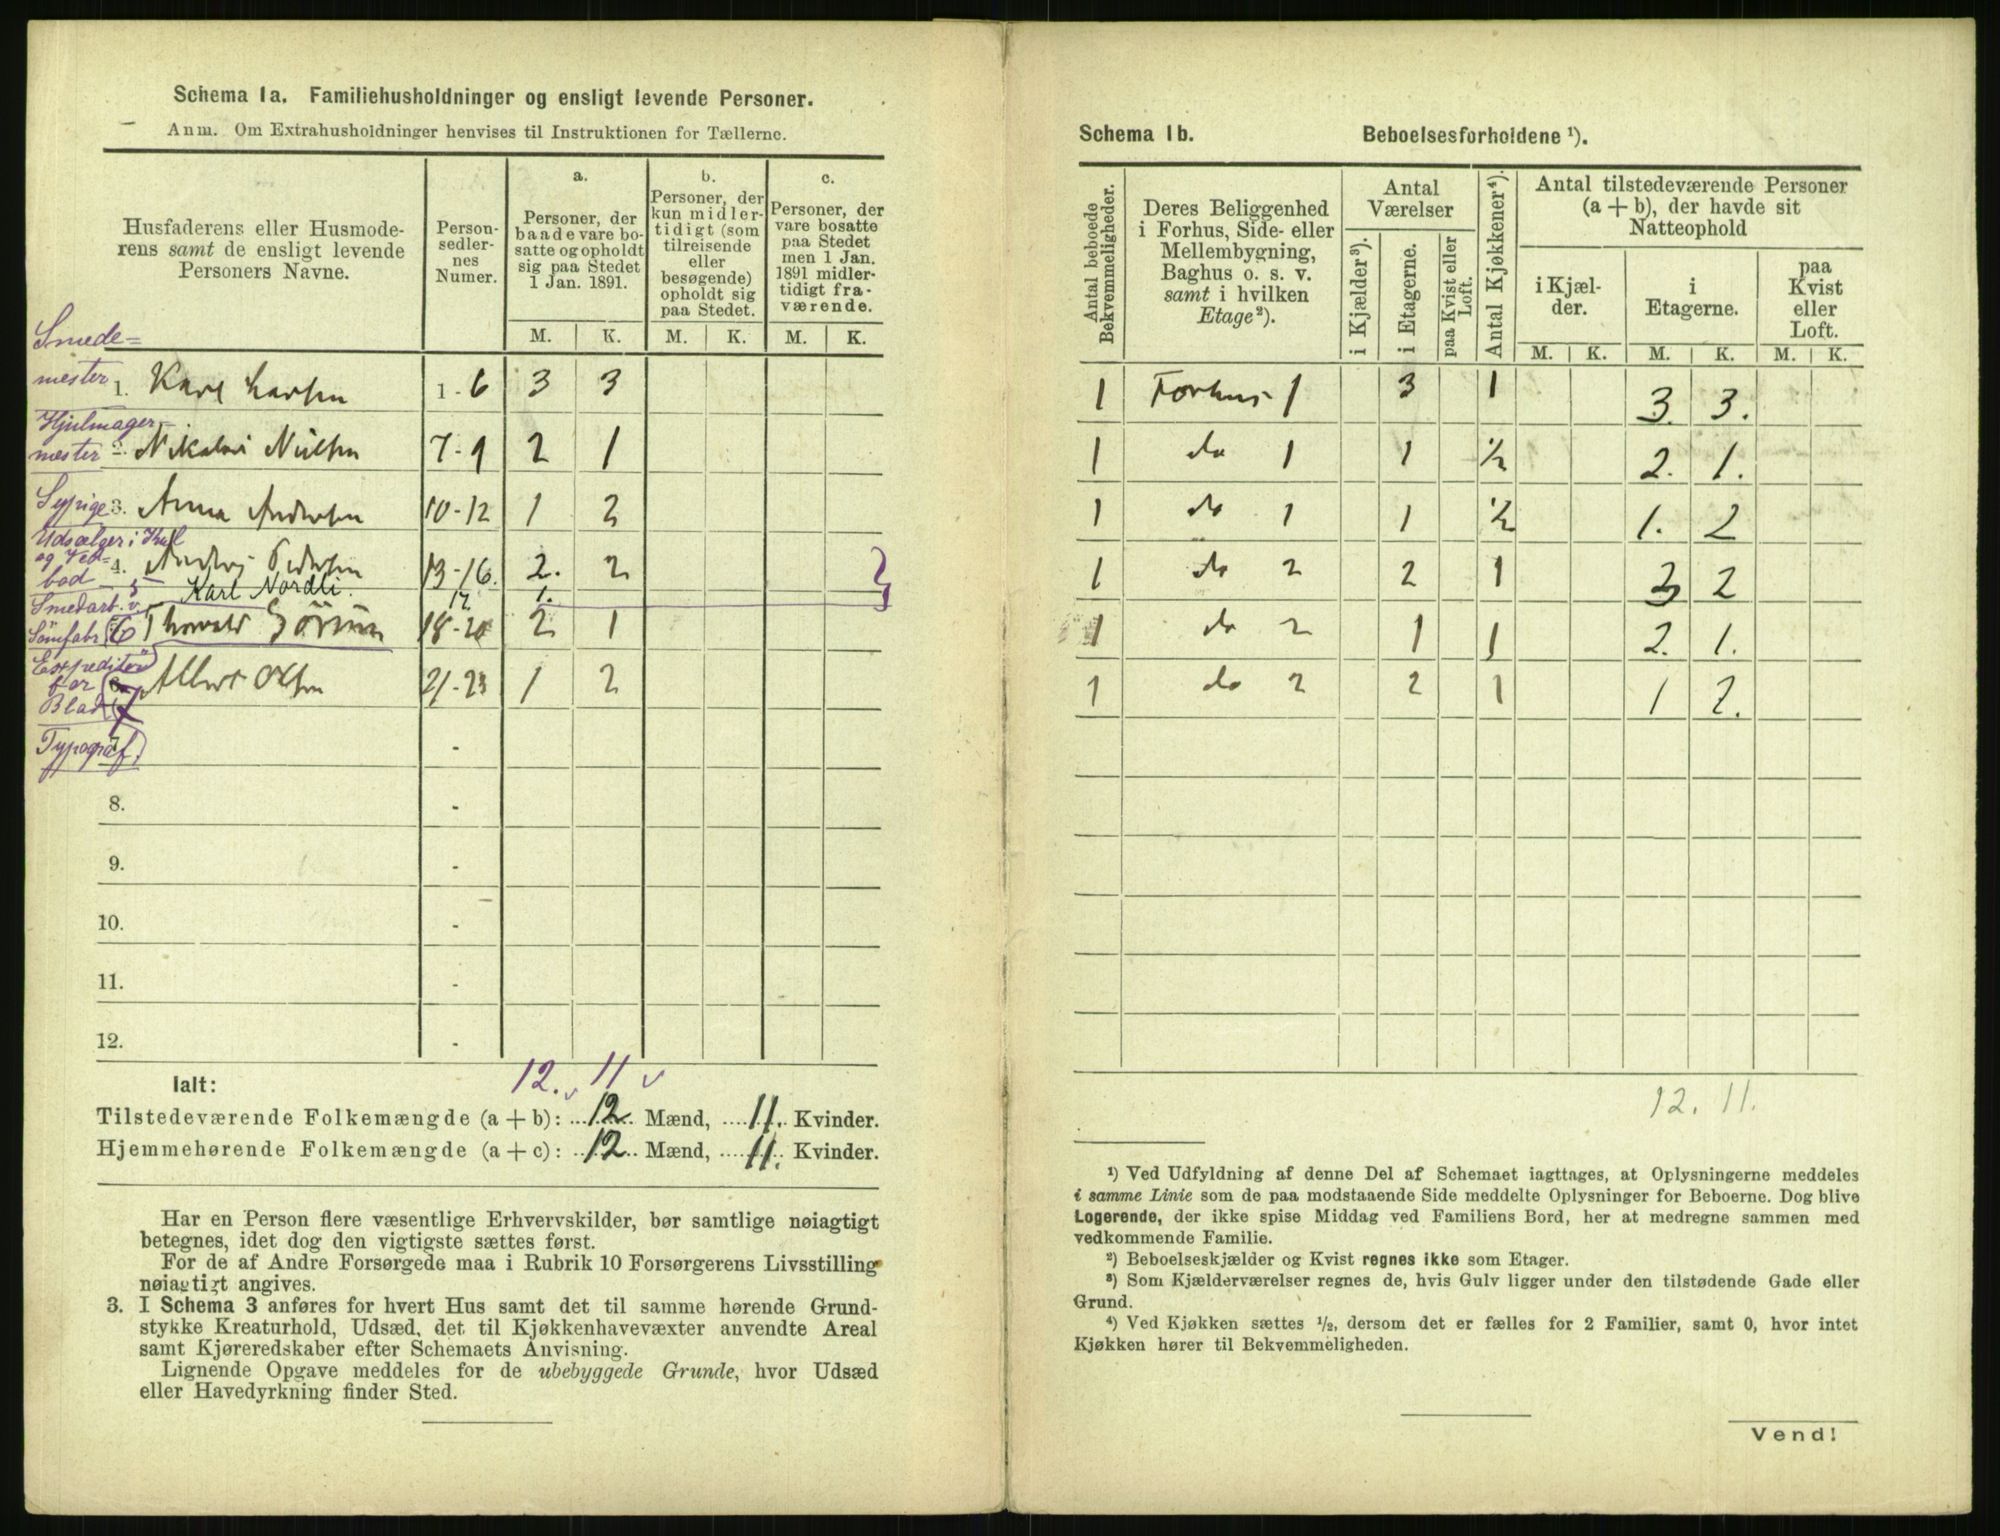 Schema 1a. Familiehusholdninger og ensligt levende Personer.
Anm. Om Extrahusholdninger henvises til Instruktionen for Tællerne.
Husfaderens eller Husmode-
rens samt de ensligt levende
Personers Navne.
Person-
sedler-
nes
Numer.
a.
Personer, der
baade vare bo-
satte og opholdt
sig paa Stedet
1 Jan. 1891.
b.
Personer, der
kun midler-
tidigt (som
tilreisende
eller
besøgende)
opholdt sig
paa Stedet.
c.
Personer, der
vare bosatte
paa Stedet
men 1 Jan.
1891 midler-
tidigt fra-
værende.
M. K. M. K. M. K.
Smede=
mester 1. Karl Larsen 1-6 3 3
Hjulmager=
mester 2. Nikolai Nielsen 7-9 2 1
Syrige 3. Anna Andersen 10-12 1 2
Udsælger i Kul
og Ved= 4. Pedersen 13-16. 2. 2
bod 5 Karl Nordli. 17. 1.
Smedarb. v.
Sömfabr. 6 Thorvald 18-20 2 1
Expeditör
for Albert Olsen 21-23 1 2
Blad 7
Typograf. -
8. -
9. -
10. -
11. -
12. -
12. v 11 v
Ialt:
Tilstedeværende Folkemængde (a + b): 12 Mænd, 11. Kvinder.
Hjemmehørende Folkemængde (a + c): 12 Mænd, 11. Kvinder.
Har en Person flere væsentlige Erhvervskilder, bør samtlige nøiagtigt
betegnes, idet dog den vigtigste sættes først.
For de af Andre Forsørgede maa i Rubrik 10 Forsørgerens Livsstilling
nøiagtigt angives.
3. I Schema 3 anføres for hvert Hus samt det til samme hørende Grund-
stykke Kreaturhold, Udsæd, det til Kjøkkenhavevæxter anvendte Areal
samt Kjøreredskaber efter Schemaets Anvisning.
Lignende Opgave meddeles for de ubebyggede Grunde, hvor Udsæd
eller Havedyrkning finder Sted.
Schema 1b. Beboelsesforholdene ¹).
Antal beboede
Bekvemmeligheder.
Deres Beliggenhed
i Forhus, Side- eller
Mellembygning,
Baghus o. s. v.
samt i hvilken
Etage²).
Antal
Værelser
i Kjælder³).
i Etagerne.
paa Kvist eller
Loft.
Antal Kjøkkener⁴).
Antal tilstedeværende Personer
(a + b), der havde sit
Natteophold
i Kjæl-
der.
i
Etagerne.
paa
Kvist
eller
Loft.
M. K. M. K. M. K.
1 Forhus 1 3 1 3. 3.
1 do 1 1 ½ 2. 1.
1 do 1 1 ½ 1. 2
1 do 2 2 1 3 2
1 do 2 1 1 2. 1.
1 do 2 2 1 1 2.
12. 11.
¹) Ved Udfyldning af denne Del af Schemaet iagttages, at Oplysningerne meddeles
i samme Linie som de paa modstaaende Side meddelte Oplysninger for Beboerne. Dog blive
Logerende, der ikke spise Middag ved Familiens Bord, her at medregne sammen med
vedkommende Familie.
²) Beboelseskjælder og Kvist regnes ikke som Etager.
³) Som Kjælderværelser regnes de, hvis Gulv ligger under den tilstødende Gade eller
Grund.
⁴) Ved Kjøkken sættes ¹/₂, dersom det er fælles for 2 Familier, samt 0, hvor intet
Kjøkken hører til Bekvemmeligheden.
Vend!